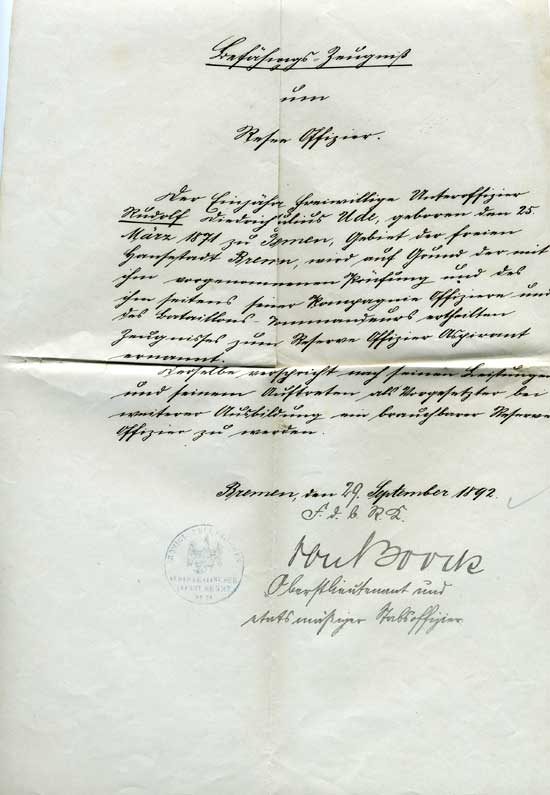 Befähigungs-Zeugniß
um
Reserve Offizier.
Der Einjährig Freiwillige Unteroffizier
Rudolf Diedrich Julius Ude, geboren den 25.
März 1871 zu Bremen, Gebiet der freien
Hansestadt Bremen, wird auf Grund der mit
ihm vorgenommenen Prüfung und des
ihm seitens seiner Kompagnie Offiziere und
des Bataillons Commandeurs ertheilten
Zeugnisses zum Reserve Offizier Aspirant
ernannt.
Derselbe verspricht nach seinen Leistungen
und seinem Auftreten als Vorgesetzter bei
weiterer Ausbildung ein brauchbarer Reserve
Offizier zu werden.
Bremen, den 29. September 1892.
F. d. b. R. K.
Oberstlieutenant und
etatsmäßiger Stabsoffizier